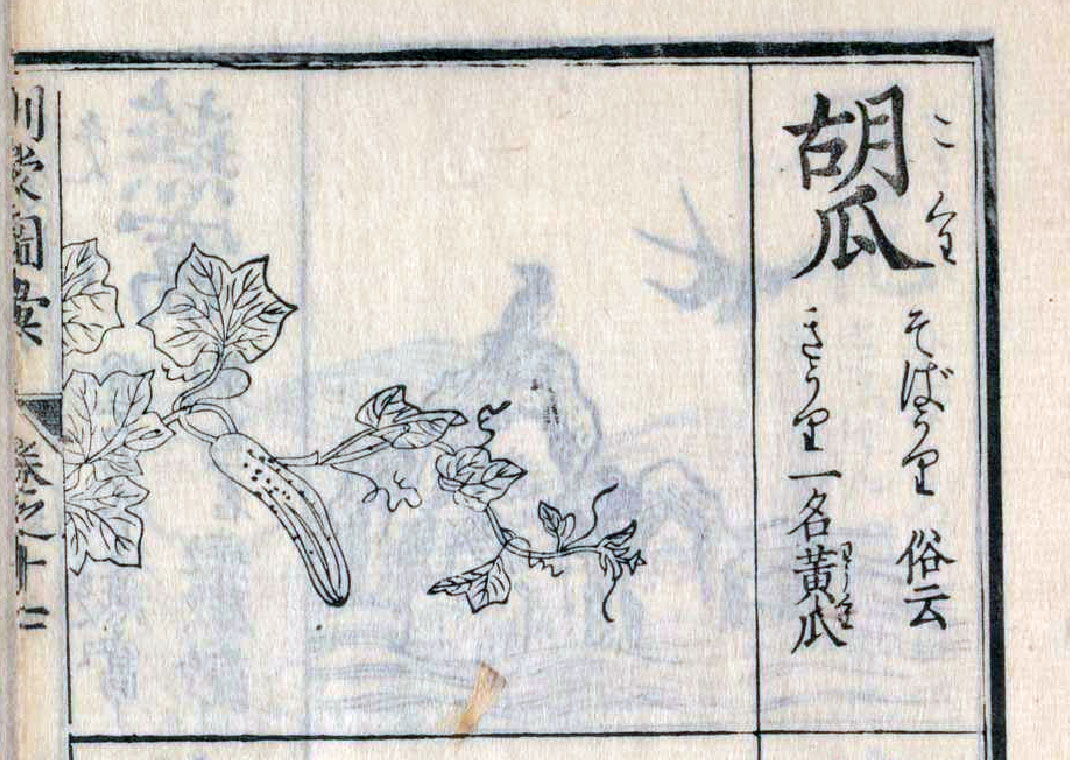 胡瓜
こくわ
そばうり 俗云
きうり 一名黄瓜
わうくわ
訓蒙圖彙 卷之十二